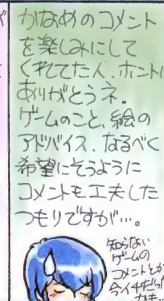 かなめのコメント
を楽しみにして
くれてた人、ホントに
ありがとうネ。
ゲームのこと、絵の
アドバイス、なるべく
希望にそうように
コメントも工夫した
つもりですが…。
知らない
ゲームの
コメントとか